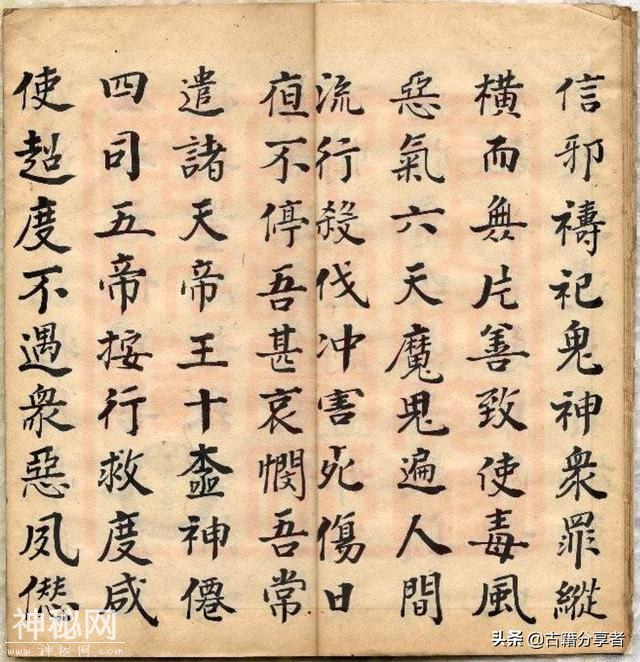 信邪禱祀鬼神衆罪縱
橫而無片善致使毒風
惡氣六天魔鬼遍人間
流行殺伐冲害死傷日
亱不停吾甚哀憫吾常
遣諸天帝王十神僊
四司五帝按行救度咸
使超度不遇衆惡夙僁
神秘网
www.神秘网.com
头条 @古籍分享者